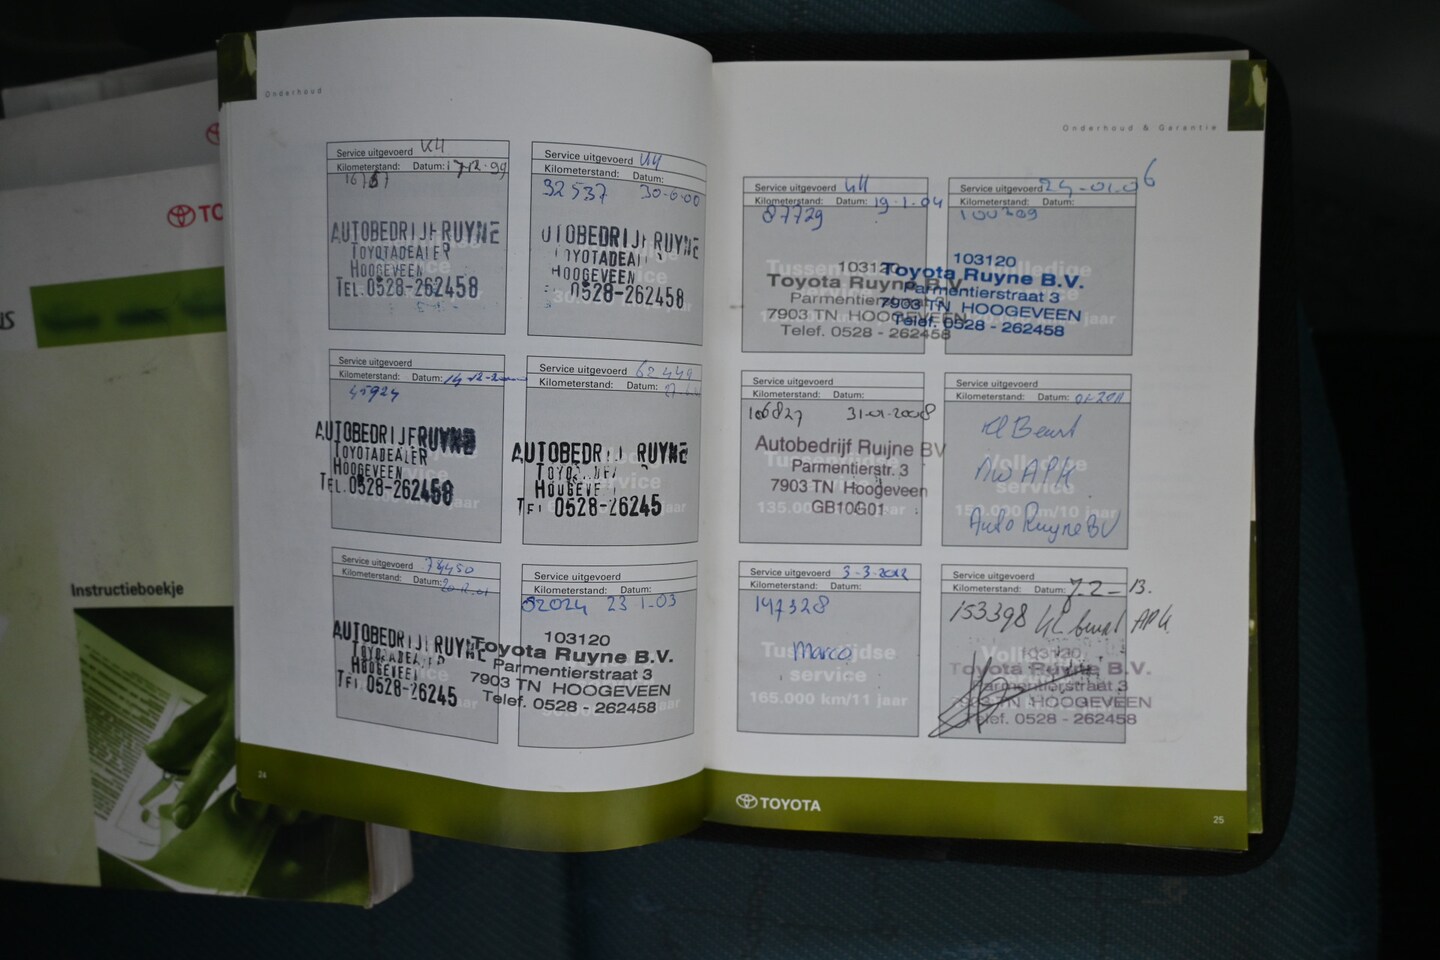 Onderhoud
Service uitgevoerd
Kilometerstand: Datum: 17-12-99
AUTOBEDRIJF RUYNE
TOYOTADEALER
HOOGEVEEN
TEL. 0528-262458
Service uitgevoerd
Kilometerstand: Datum:
32537 30-6-00
UTOBEDRIJF RUYNE
HOOGEVEEN
0528-262458
Service uitgevoerd
Kilometerstand: Datum:
45924
AUTOBEDRIJF RUYNE
TOYOTADEALER
HOOGEVEEN
TEL. 0528-262458
Service uitgevoerd 62449
Kilometerstand: Datum:
AUTOBEDRIJF RUYNE
0528-26245
Service uitgevoerd
Kilometerstand: Datum:
AUTOBEDRIJF RUYNE
0528-26245
Service uitgevoerd
Kilometerstand: Datum:
82024 23-1-03
103120
Toyota Ruyne B.V.
Parmentierstraat 3
7903 TN HOOGEVEEN
Telef. 0528 - 262458
24
Onderhoud & Garantie
Service uitgevoerd
Kilometerstand: Datum: 19-1-04
87729
103120
Toyota Ruyne B.V.
Parmentierstraat 3
7903 TN HOOGEVEEN
Telef. 0528 - 262458
Service uitgevoerd 24-01-06
Kilometerstand: Datum:
103120
Toyota Ruyne B.V.
Parmentierstraat 3
7903 TN HOOGEVEEN
Telef. 0528 - 262458
Service uitgevoerd
Kilometerstand: Datum:
106827 31-01-2008
Autobedrijf Ruijne BV
Parmentierstr. 3
7903 TN Hoogeveen
GB10G01
135.000
Service uitgevoerd
Kilometerstand: Datum: 01-2011
Kl Beurt
Volledige
service
NW APK
150.000 km/10 jaar
Auto Ruyne BV
Service uitgevoerd 3-3-2012
Kilometerstand: Datum:
147328
Marco
Tussentijdse
service
165.000 km/11 jaar
Service uitgevoerd
Kilometerstand: Datum: 7-2-13.
153398 Kl beurt APK
103120
Toyota Ruyne B.V.
Parmentierstraat 3
7903 TN HOOGEVEEN
Telef. 0528 - 262458
TOYOTA
25
TO
Instructieboekje